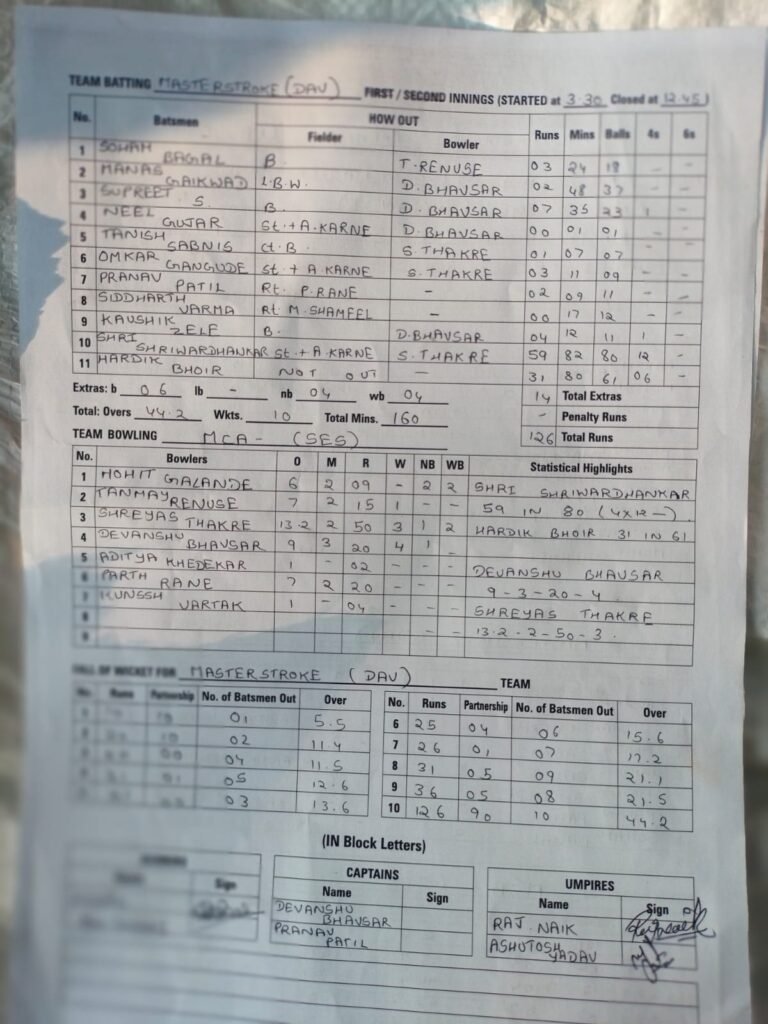 TEAM BATTING MASTERSTROKE (DAV) FIRST / SECOND INNINGS (STARTED at 3.30 Closed at 12.45)
No. Batsmen HOW OUT Runs Mins Balls 4s 6s
Fielder Bowler
1 SOHAM BAGAL B. T. RENUSE 03 24 18 - -
2 MANAS GAIKWAD L.B.W. D. BHAVSAR 02 48 37 - -
3 SUPREET S. B. D. BHAVSAR 07 35 23 1 -
4 NEEL GUJAR St. + A. KARNE D. BHAVSAR 00 01 01 - -
5 TANISH SABNIS Ct. B. S. THAKRE 01 07 07 - -
6 OMKAR GANGUDE St. + A KARNE S. THAKRE 03 11 09 - -
7 PRANAV PATIL Rt. P. RANE - 02 09 11 - -
8 SIDDHARTH VARMA Rt M. SHAMEEL - 00 17 12 - -
9 KAUSHIK ZELE B. D. BHAVSAR 04 12 11 1 -
10 SHRI SHRIWARDHANKAR St. + A. KARNE S. THAKRE 59 82 80 12 -
11 HARDIK BHOIR NOT OUT 31 80 61 06 -
Extras: b 06 lb - nb 04 wb 04 14 Total Extras
Total: Overs 44.2 Wkts. 10 Total Mins. 160 - Penalty Runs
126 Total Runs
TEAM BOWLING MCA - (SES)
No. Bowlers O M R W NB WB Statistical Highlights
1 MOHIT GALANDE 6 2 09 - 2 2 SHRI SHRIWARDHANKAR
2 TANMAY RENUSE 7 2 15 1 - - 59 IN 80 (4x12 -)
3 SHREYAS THAKRE 13.2 2 50 3 1 2 HARDIK BHOIR 31 IN 61
4 DEVANSHU BHAVSAR 9 3 20 4 1 -
5 ADITYA KHEDEKAR 1 - 02 - - - DEVANSHU BHAVSAR
6 PARTH RANE 7 2 20 - - - 9 - 3 - 20 - 4
7 KUNSSH VARTAK 1 - 04 - - - SHREYAS THAKRE
8 - - 13.2 - 2 - 50 - 3.
9
FALL OF WICKET FOR MASTERSTROKE (DAV) TEAM
No. Runs Partnership No. of Batsmen Out Over No. Runs Partnership No. of Batsmen Out Over
01 5.5 6 25 04 06 15.6
02 11.4 7 26 01 07 17.2
04 11.5 8 31 05 09 21.1
05 12.6 9 36 05 08 21.5
03 13.6 10 126 90 10 44.2
(IN Block Letters)
CAPTAINS UMPIRES
Sign Name Sign Name Sign
DEVANSHU BHAVSAR RAJ NAIK
PRANAV PATIL ASHUTOSH YADAV